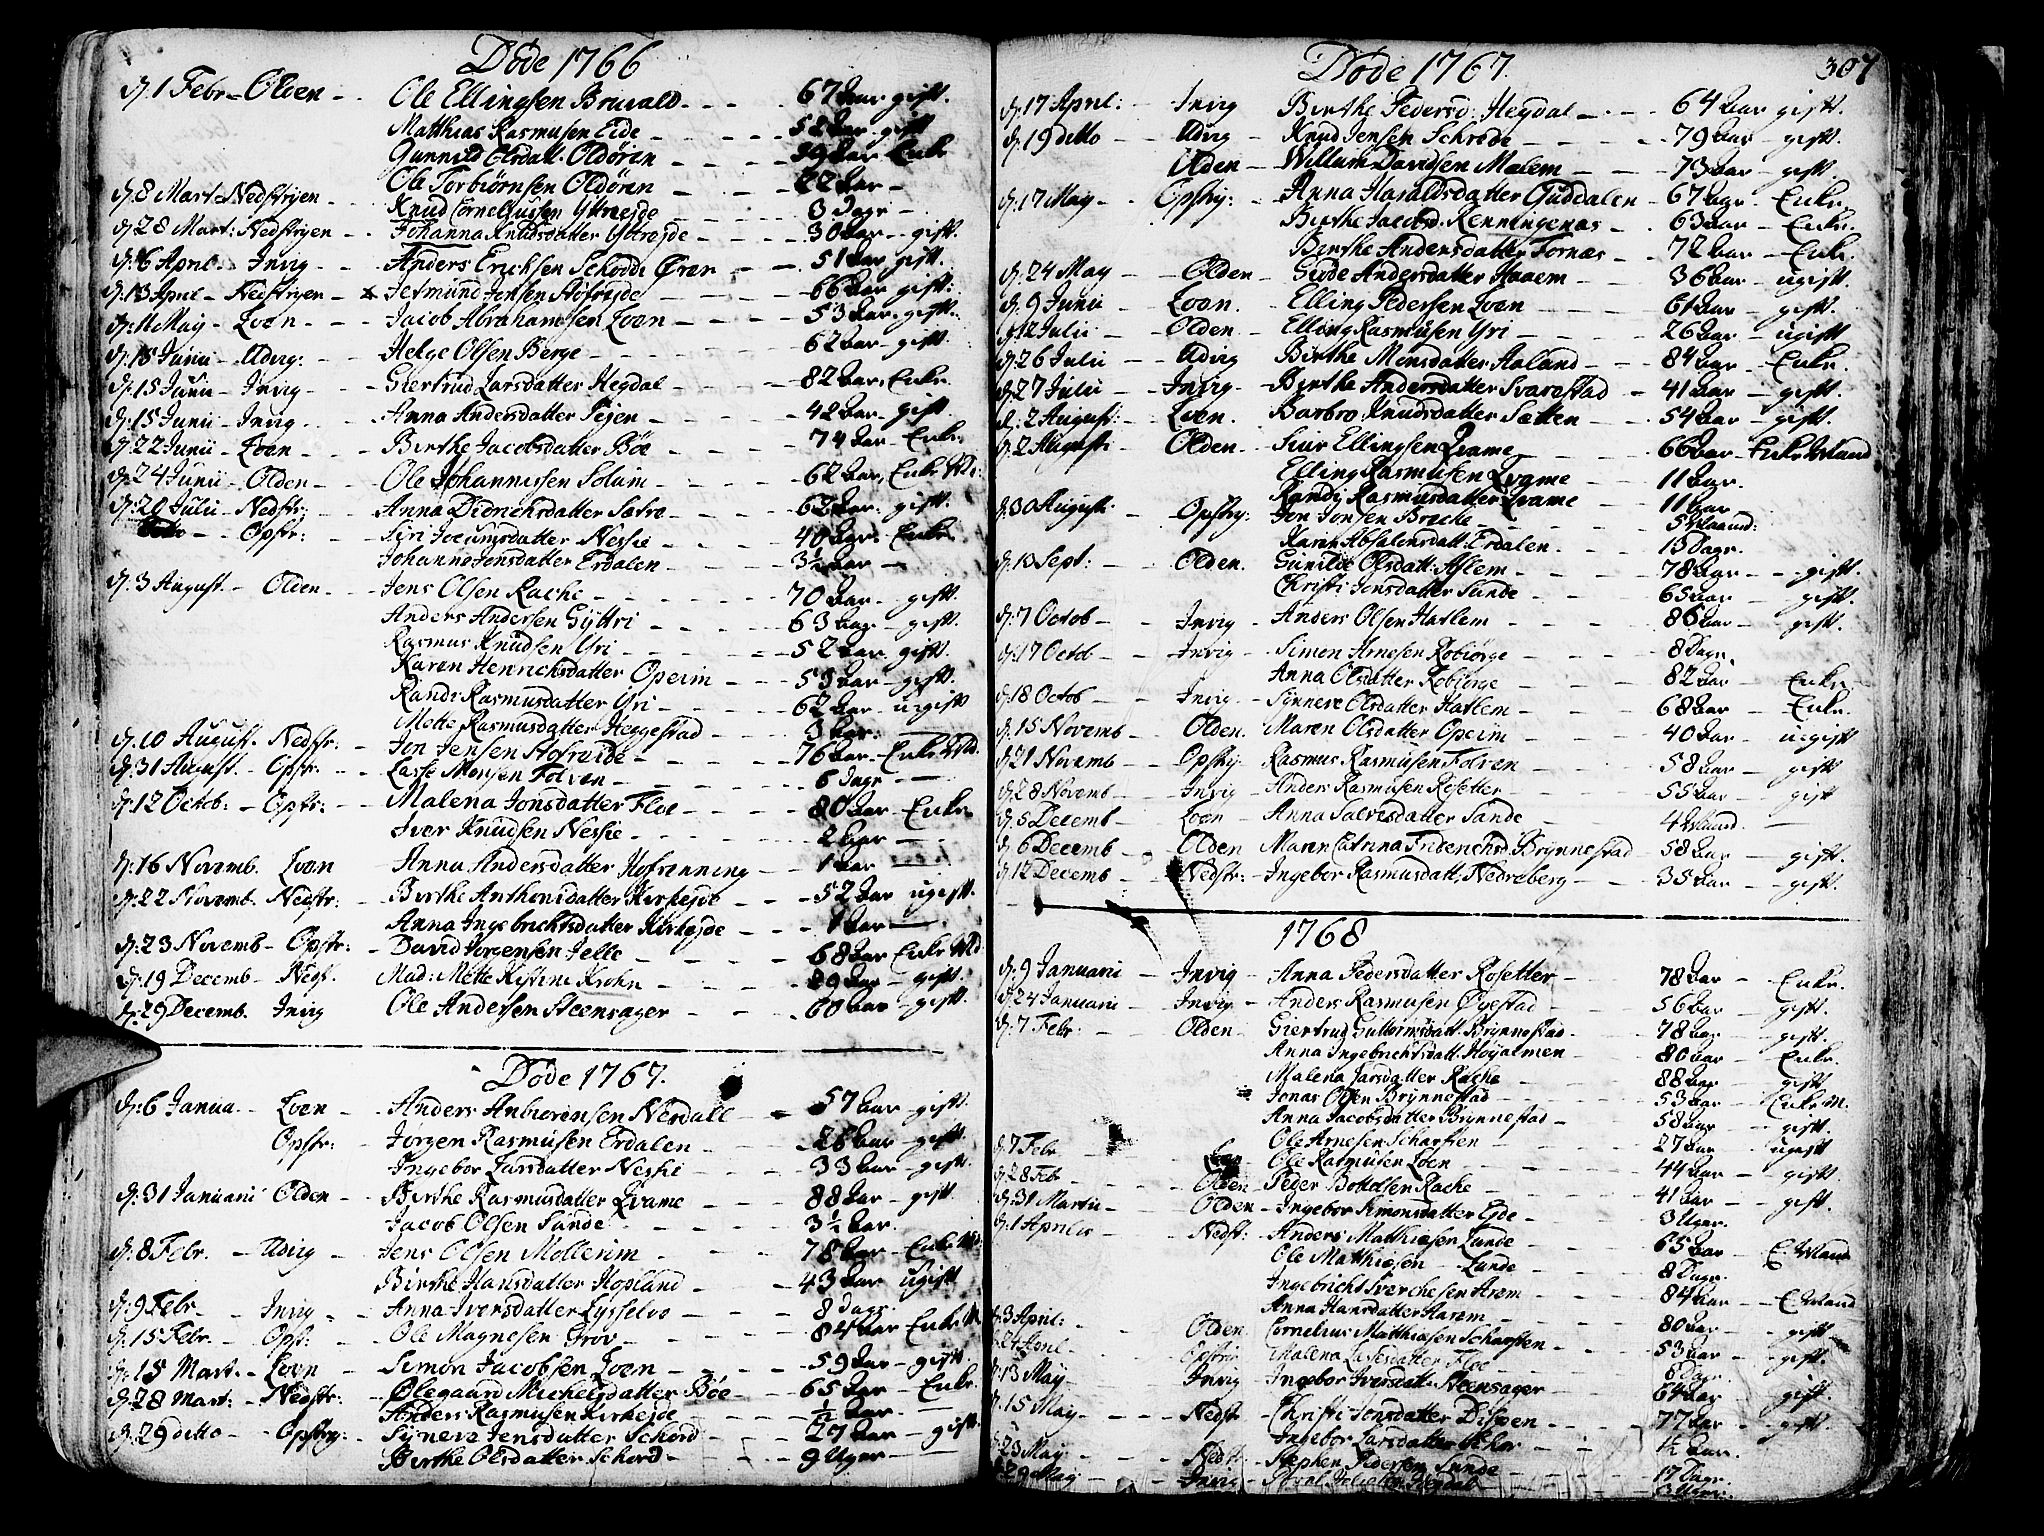 Døde 1766
d: 1 Febr – Olden – Ole Ellingsen Bruvald – 67 Aar gift.
Matthias Rasmusen Eide – 52 Aar gift
Gunnild Olsdatt: Oldøren – 59 Aar Enke
Ole Torbiørnsen Oldøren – 22 Aar –
d: 8 Mart. Nedstryen – Knud Cornelsusen Yttreejde – 3 Dage –
d: 28 Mart: Nedstryen – Johanna Knudsdatter Yttrejde – 30 Aar – gift.
d: 6 April – Invig – Anders Erichsen Schodde Øren – 51 Aar gift.
d: 13 April – Nedstryen – x Jetmund Jensen Hofrejde – 66 Aar gift:
d: 11 May – Loen – Jacob Abrahamsen Loen – 53 Aar – gift.
d: 15 Junii – Udvig: – Helge Olsen Berge – 62 Aar – gift.
d: 15 Junii – Invig – Giertrud Larsdatter Hegdal – 82 Aar, Enke.
d: 15 Junii – Invig – Anna Andersdatter Tejen – 42 Aar – gift.
d: 22 Junii – Loen – Birthe Jacobsdatter Bøe – 74 Aar – Enke.
d: 24 Junii – Olden – Ole Johannessen Solum – 62 Aar, Enke M:
d: 20 Julii – Nedstr: – Anna Didrichsdatter Sætre – 62 Aar: gift.
ditto – Opstr: – Siri Joeumsdatter Nessie – 40 Aar: Enke
Johanne Jensdatter Erdalen – 3½ Aar –
d: 3 August. – Olden – Jens Olsen Rache – 70 Aar – gift.
Anders Andersen Gyttri – 63 Aar – gift.
Rasmus Knudsen Yri – 52 Aar gift.
Karen Henrichsdatter Opeim – 53 Aar – gift.
Randi Rasmusdatter Yri – 62 Aar – ugift
Mette Rasmusdatter Heggestad – 3 Aar:
d: 10 August. Nedstr: – Jon Jensen Hofreide – 76 Aar – Enke Md.
d: 31 August. – Opstr: – Lasse Monsen Folven – 6 Dage –
d: 12 Octob: – Opstr: – Malena Jonsdatter Floe – 80 Aar – Enke
Iver Knudsen Nessie – 2 Aar –
d: 16 Novemb. Loen – Anna Andersdatter Hofrenning – 1 Aar –
d: 22 Novemb. Nedstr: – Birthe Anthonisdatter Kirkejde – 52 Aar ugift.
Anna Ingebrichtsdatter Kirkejde – 1 Aar –
d: 23 Novemb – Opstr: – David Jørgensen Telle – 68 Aar Enke Md.
d: 19 Decemb – Nedst. – Mad: Mette Kistine Krohn – 29 Aar – gift.
d: 29 Decemb. Invig – Ole Andersen Steensager – 60 Aar – gift.
Døde 1767.
d: 6 Janua. – Loen – Anders Anbiørensen Nesdall – 57 Aar – gift.
Opstr: – Jørgen Rasmusen Erdalen – 28 Aar – gift.
Ingebor Larsdatter Nessie – 33 Aar – gift.
d: 31 Januarii Olden – Birthe Rasmusdatter Qvame – 88 Aar – gift.
Jacob Olsen Sande – 3½ Aar.
d: 8 Febr. – Udvig – Jens Olsen Mollerim – 78 Aar – Enke M:
Birthe Hansdatter Hopland – 43 Aar ugift
d: 9 Febr – Invig – Anna Iversdatter Lysselvo – 8 dage.
d: 15 Febr. – Opst: – Ole Magnesen Grov – 84 Aar Enke M.
d: 15 Mart. – Loen – Simon Jacobsen Loen – 59 Aar – gift.
d: 28 Mart: – Nedstr: – Ølegaard Michelsdatter Bøe – 65 Aar – Enke.
Anders Rasmusen Kirkejde – ½ Aar. –
d: 29 ditto – Opstry: – Synneve Jensdatter Schord – 27 Aar – gift.
Birthe Olsdatter Schord – 9 Uger –
307
Døde 1767.
d: 17 April: – Invig – Birthe Pedersd: Hegdal – 64 Aar gift.
d: 19 ditto – Udvig – Knud Jensen Schrøde – 79 Aar – gift.
Olden – Willum Davidsen Malem – 73 Aar – gift.
d: 17 May – Opstry: – Anna Haraldsdatter Guddalen – 67 Aar – Enke.
Birthe Jacobsd: Renningenæs – 63 Aar – Enke.
Birthe Andersdatter Tornæs – 72 Aar – Enke.
d: 24 May – Olden – Siude Andersdatter Haaem – 36 Aar – ugift.
d: 9 Junii – Loen. – Elling Pedersen Loen – 61 Aar – gift.
d: 12 Julii – Olden – Elling Rasmusen Yri – 26 Aar – ugift
d: 26 Julii – Udvig – Birthe Monsdatter Aaland – 84 Aar – Enke.
d: 27 Julii – Invig – Birthe Andersdatter Svarestad – 41 Aar – gift.
d: 2 August: – Loen. – Barbro Knudsdatter Sætten – 54 Aar – gift.
d: 2 August: – Olden – Siur Ellingsen Qvame – 66 Aar – Enke Mand
Elling Rasmusen Qvame – 11 Aar.
Randj Rasmusdatter Qvame – 11 Aar
d: 30 August: – Opstry: – Jon Jonsen Bræcke – 5 Maand:
Karen Absalensdatt: Erdalen – 13 Dage.
d: 13 Sept: – Olden. – Gunilde Olsdatt: Aslem – 78 Aar – gift.
Christi Jonsdatter Sande – 65 Aar – gift.
d: 7 Octob – Invig – Anders Olsen Hatlem – 86 Aar – gift.
d: 17 Octob – Invig – Simon Arnesen Robiørge – 8 Dage.
Anna Olsdatter Robiørge – 82 Aar – Enke.
d: 18 Octob – Invig – Synnere Olsdatter Hatlem – 68 Aar – Enke.
d: 15 Novemb – Olden. – Maren Olsdatter Opeim – 40 Aar – ugift
d: 21 Novemb – Opstry – Rasmus Rasmusen Folven – 58 Aar – gift
d: 28 Novemb – Invig – Anders Rasmusen Rosetter – 55 Aar – gift
d: 5 Decemb – Loen – Anna Salvesdatter Sande – 4 Maand. –
d: 6 Decemb – Olden – Maren Catrina Friderichsd: Brynnestad – 58 Aar – gift.
d: 12 Decemb – Nedstr: – Ingebor Rasmusdatt: Nedreberg – 35 Aar – gift.
1768
d: 9 Januarii – Invig – Anna Pedersdatter Rosetter – 78 Aar – Enke.
d: 24 Januarii – Invig – Anders Rasmusen Øvestad – 56 Aar – gift.
d: 7 Febr: – Olden – Giertrud Guttormsdatt: Brynnestad – 78 Aar – gift.
Anna Ingebrichtsdatt: Høyalmen – 80 Aar – Enke.
Malena Larsdatter Rache – 88 Aar – gift
Jonas Olsen Brynnestad – 53 Aar – Enke M.
Anna Jacobsdatter Brynnestad – 58 Aar – gift.
Ole Arnesen Scharsten – 27 Aar – ugift
d: 7 Febr – Loen – Ole Rasmusen Loen – 44 Aar – gift.
d: 28 Feb – Olden – Peder Bottolsen Rache – 41 Aar – gift.
d: 31 Martii – Olden – Ingebor Simonsdatter Ejde – 3 Uger.
d: 1 Aprilis – Nedst: – Anders Matthiasen Lunde – 65 Aar – E. Mand
Ole Matthiesen Lunde – 8 Dage.
Ingebricht Sverchesen Arem – 84 Aar – E Mand
Anna Hansdatter Harem – 80 Aar – gift
d: 3 April: – Olden – Cornelius Matthiasen Scharsten – 53 Aar – gift.
d: 24 April – Opstry – Malena Lassesdatter Floe – 8 Dage.
d: 13 May – Invig – Ingebor Iversdatt: Steensager – 64 Aar – gift.
d: 15 May – Nedst – Christi Jonsdatter Dispen – 77 Aar – gift.
Ingebor Larsdatter – ½ Aar.
d: 23 May – Nedst: – Stephen Pedersen Sunde – 17 Dage
d: 29 May – Invig – 3 Uger.